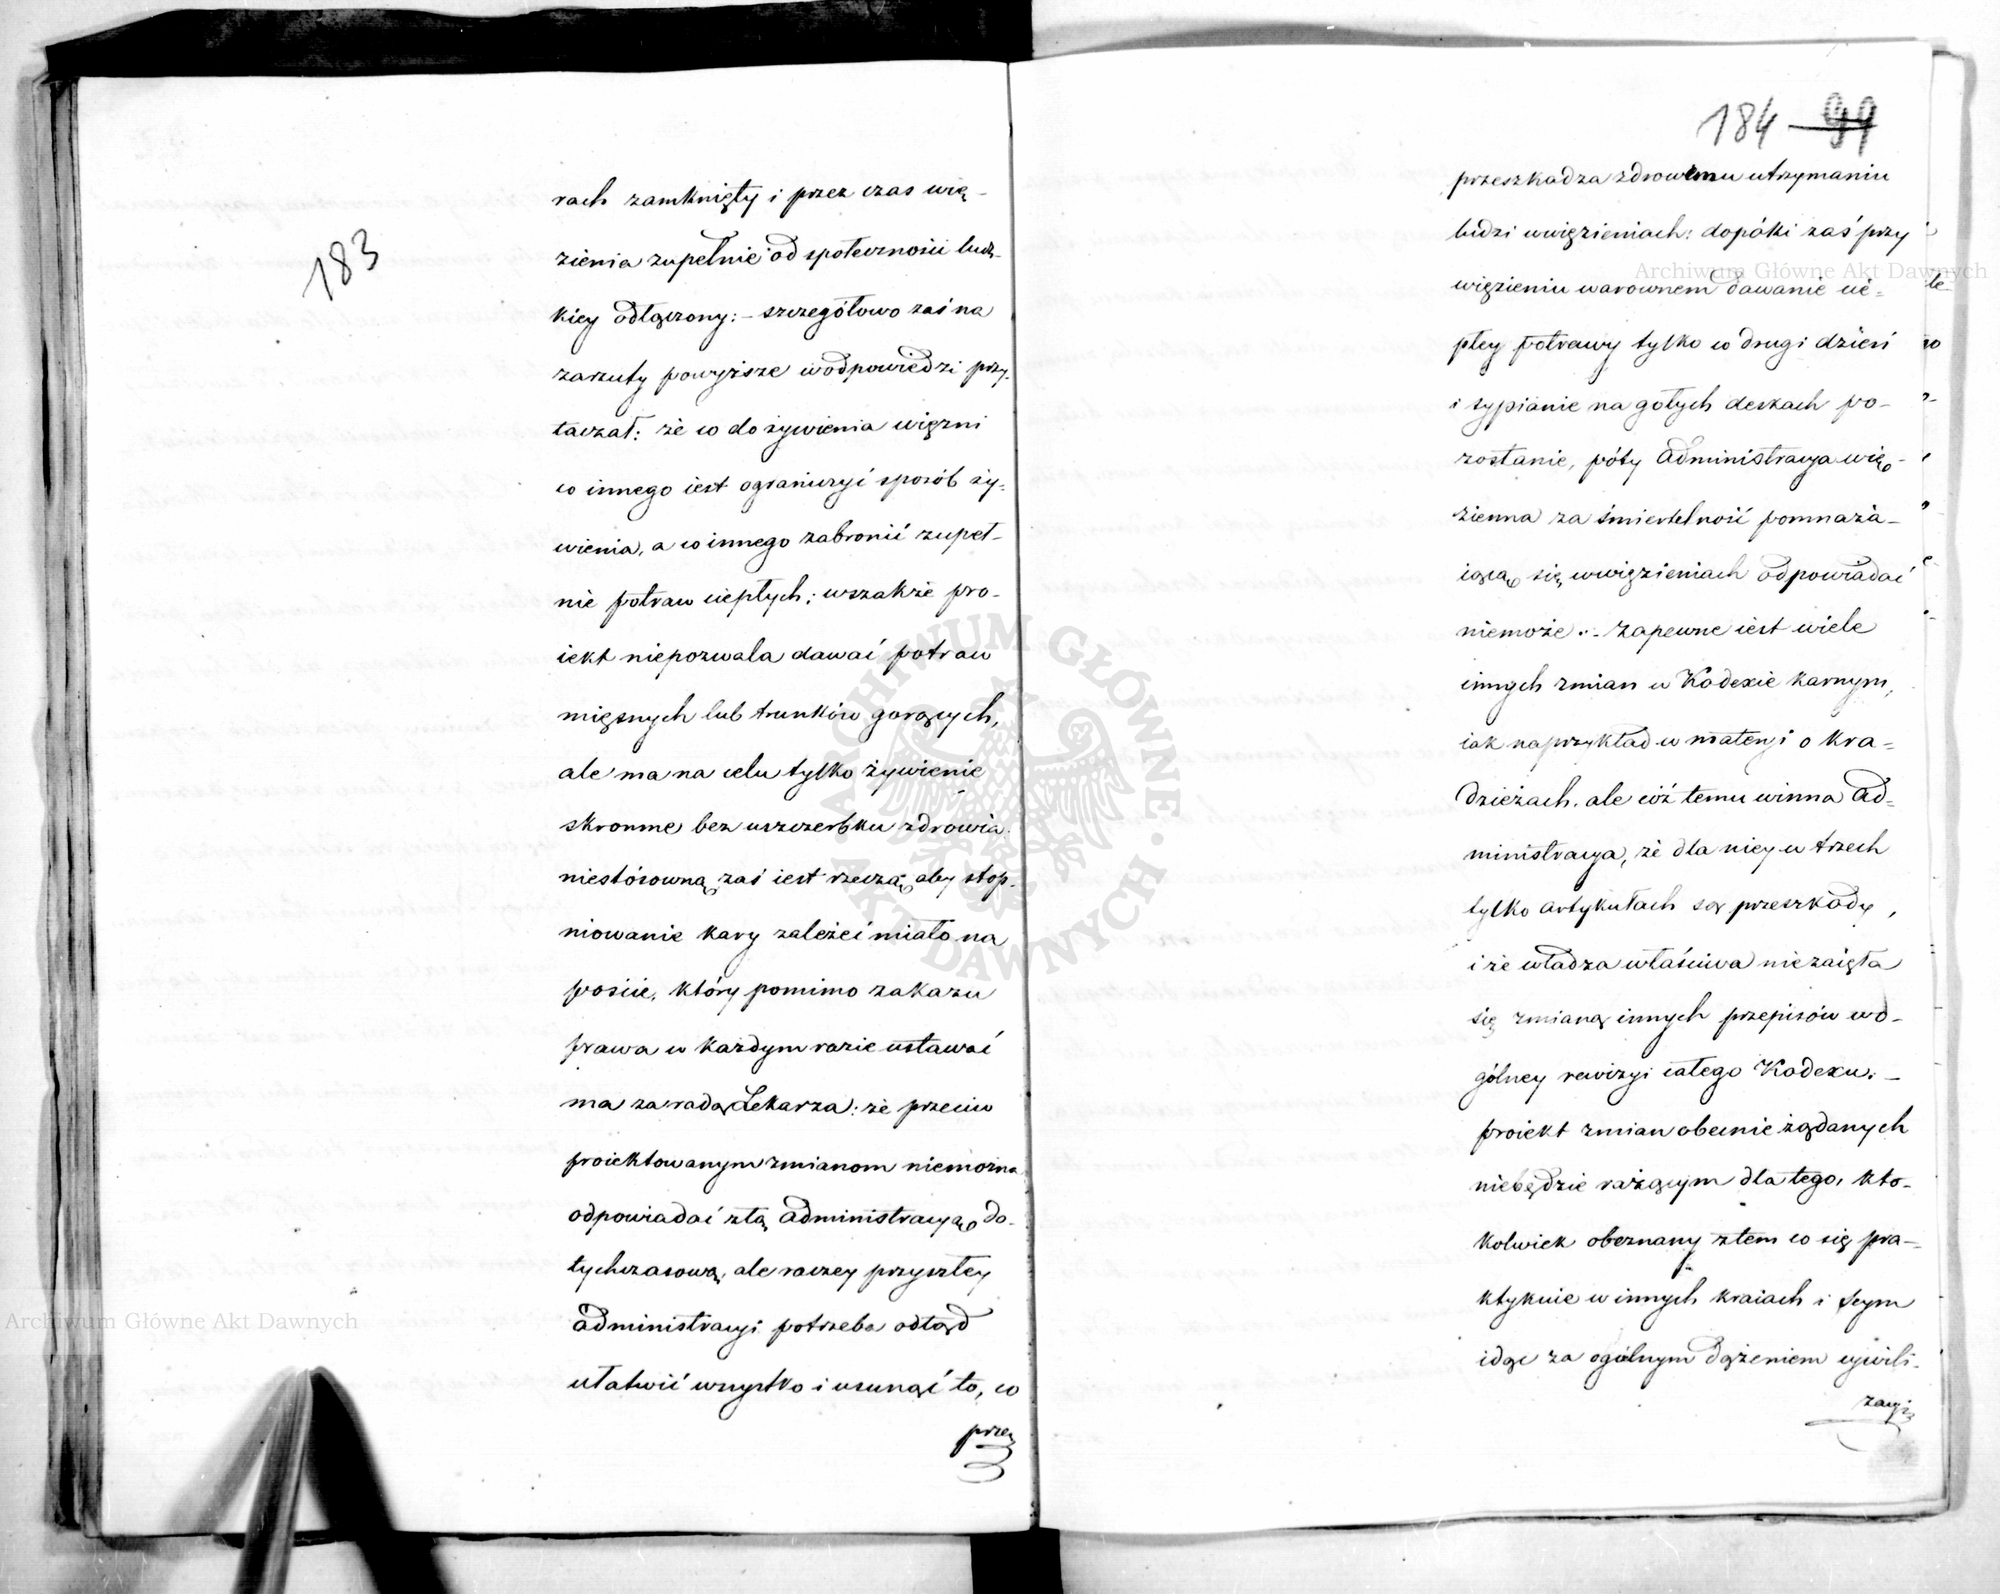 183
rach zamknięty i przez czas wię-
zienia zupełnie od społeczności ludz-
kiey odłączony: – szczegółowo zaś na
zarzuty powyższe w odpowiedzi przy-
taczał: że co do żywienia więzni
co innego iest ograniczyć sposób ży-
wienia, a co innego zabronić zupeł-
nie potraw ciepłych; wszakże pro-
iekt niepozwala dawać potraw
mięsnych lub trunków gorących,
ale ma na celu tylko żywienie
skromne bez uszczerbku zdrowia:
niestósowną zaś iest rzeczą, aby stop-
niowanie kary zależeć miało na
poście, który pomimo zakazu
prawa w każdym razie ustawać
ma za radą Lekarza: że przeciw
proiektowanym zmianom niemożna
odpowiadać złą administracyą do-
tychczasową, ale raczey przyszłey
administracyi potrzeba odtąd
ułatwić wszystko i usunąć to, co
prze
184 99
przeszkadza zdrowemu utrzymaniu
ludzi w więzieniach: dopóki zaś przy
więzieniu warownem dawanie cie-
płey potrawy tylko co drugi dzień
i sypianie na gołych deskach po-
zostanie, póty administracya wię-
zienna za śmiertelność pomnaża-
iącą się w więzieniach odpowiadać
niemoże. – Zapewne iest wiele
innych zmian w Kodexie karnym,
iak naprzykład w materyi o kra-
dzieżach, ale cóż temu winna ad-
ministracya, że dla niey w trzech
tylko artykułach są przeszkody,
i że władza właściwa niezaięła
się zmianą innych przepisów w o-
gólney rewizyi całego Kodexu. –
proiekt zmian obecnie żądanych
niebędzie rażącym dla tego, kto-
kolwiek obeznany z tem co się pra-
ktykuie w innych kraiach i Seym
idąc za ogólnym dążeniem cywili-
zacyi
Archiwum Główne Akt Dawnych
Archiwum Główne Akt Dawnych
ARCHIWUM GŁÓWNE AKT DAWNYCH